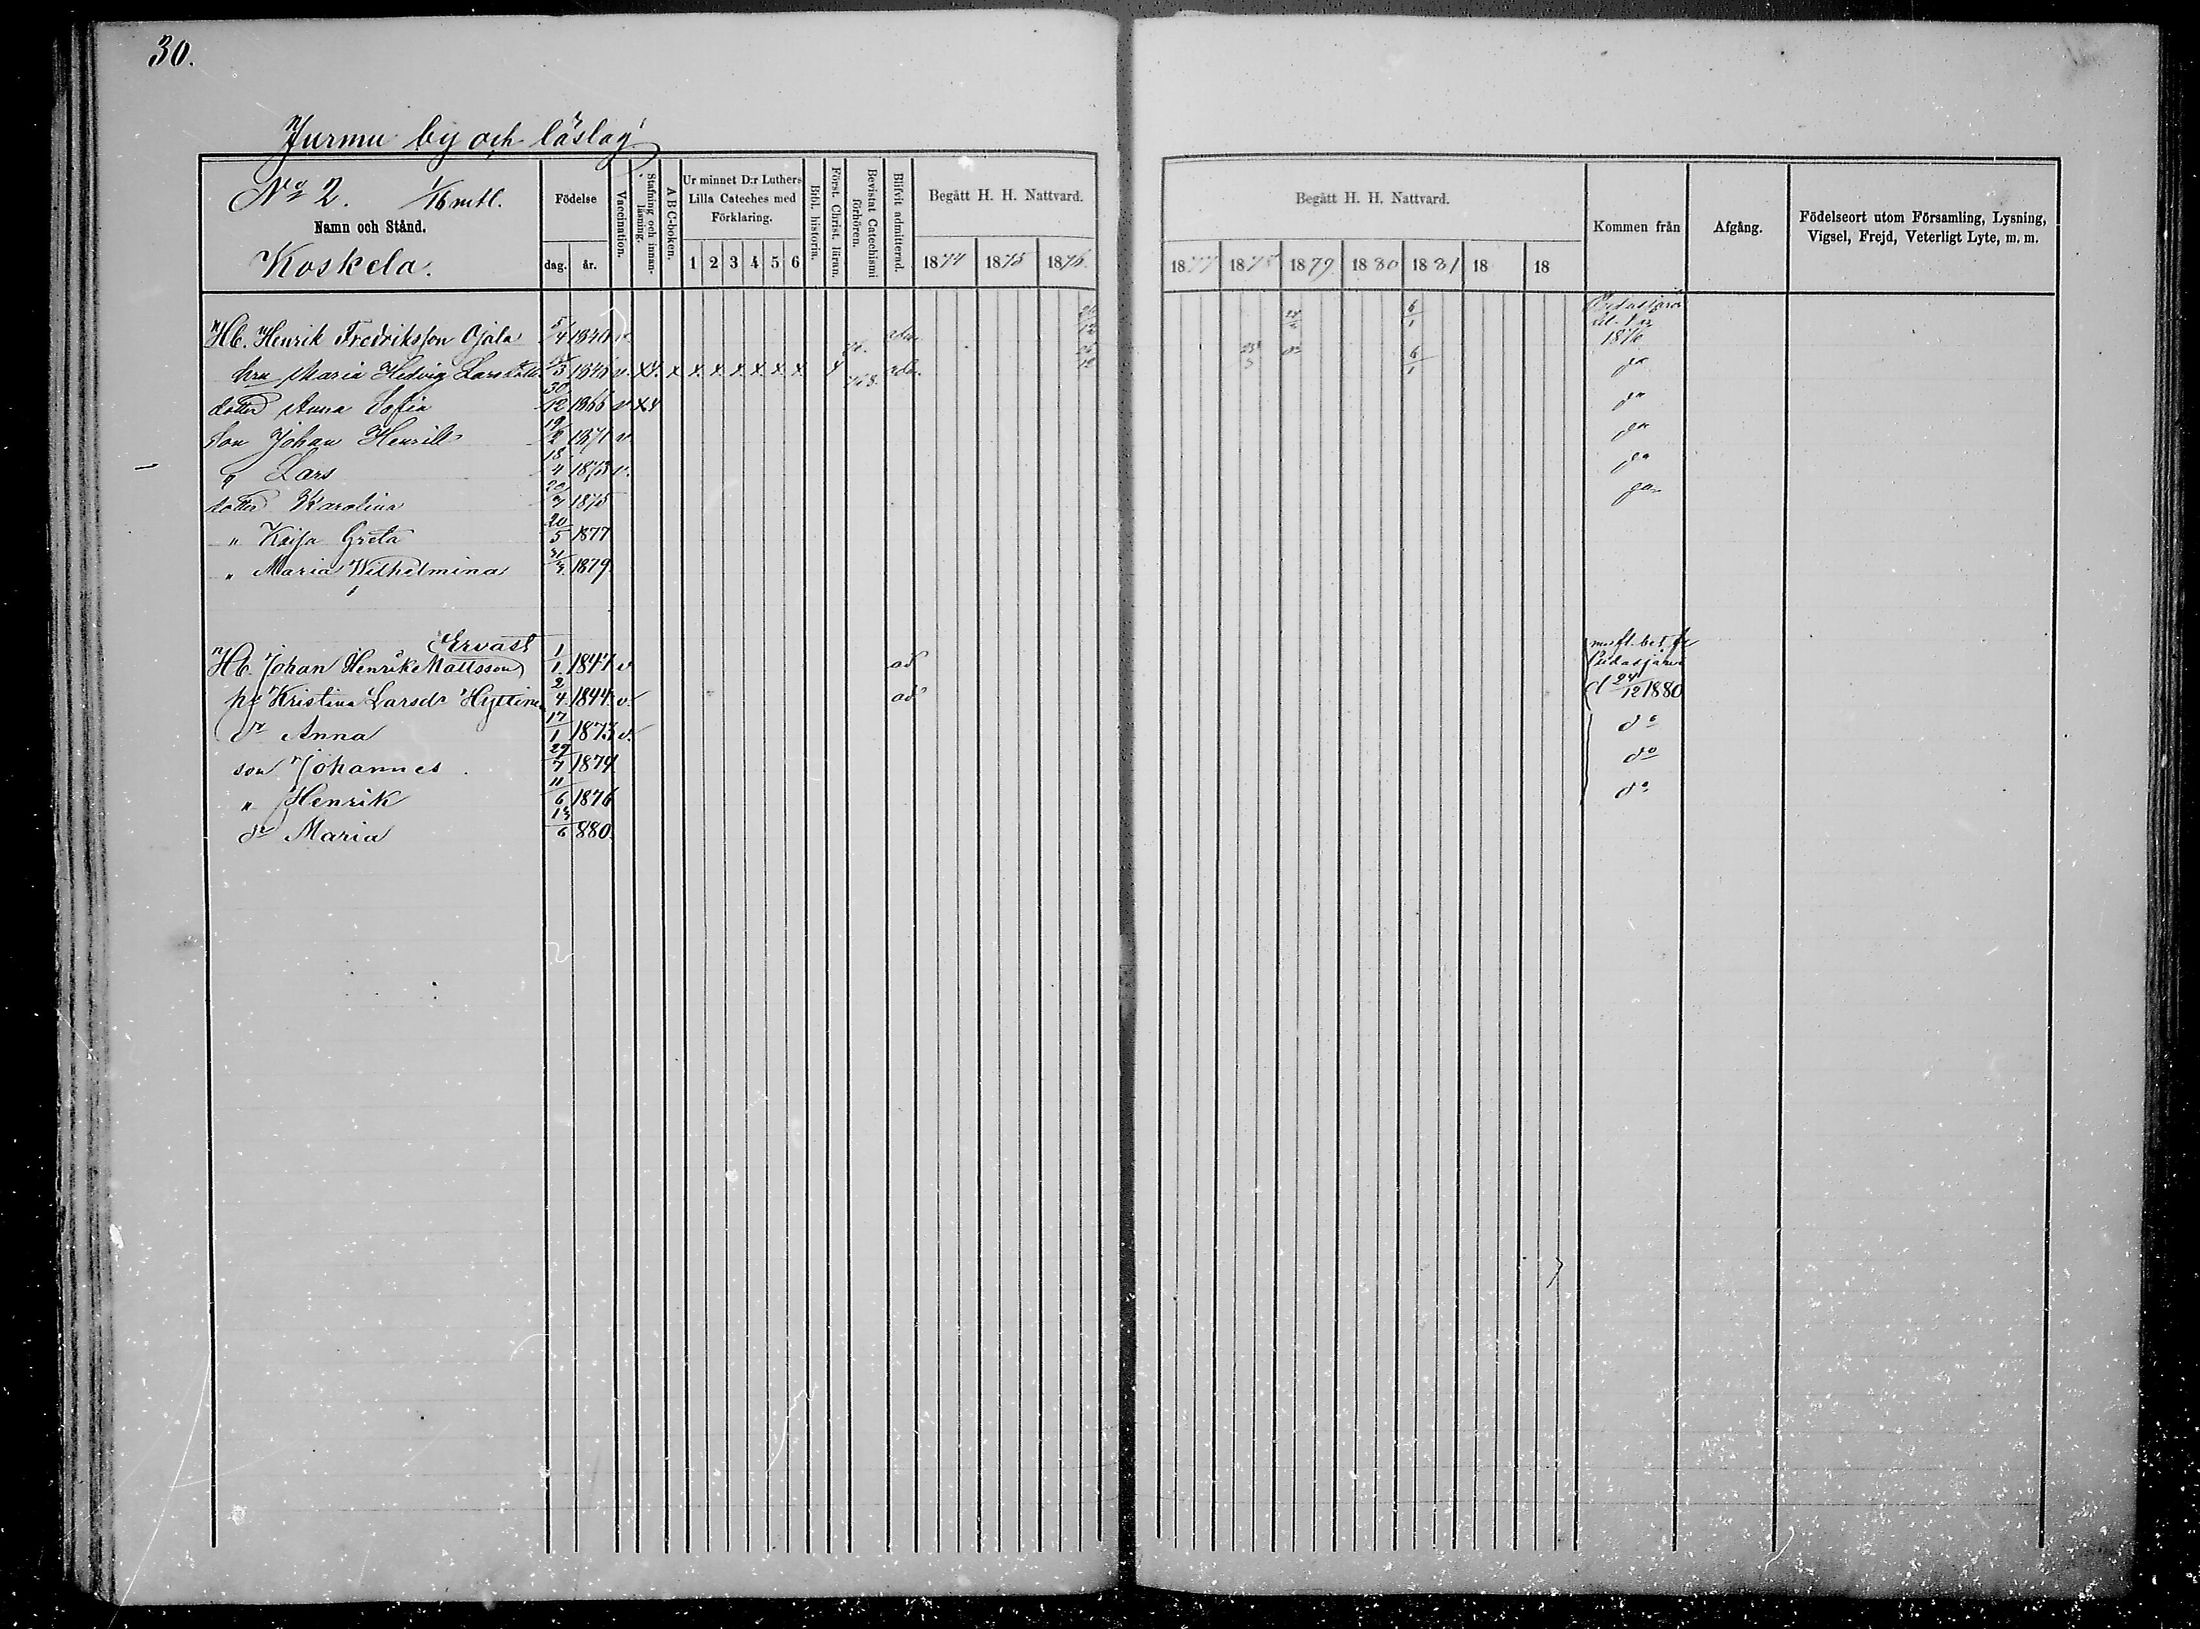 30.
Jurmu by och läslag
No 2. 1/16 mtl.
Namn och Stånd.
Koskela.
Födelse
dag. år.
Vaccination.
Stafning och innan-läsning.
A B C-boken.
Ur minnet D:r Luthers Lilla Cateches med Förklaring.
1 2 3 4 5 6
Bibl. historia.
Först. Christ. läran.
Bevistat Catechismi förhören.
Blifvit admitterad.
Begått H. H. Nattvard.
1874 1875 1876
Begått H. H. Nattvard.
1877 1878 1879 1880 1881 18 18
Kommen från
Afgång.
Födelseort utom Församling, Lysning, Vigsel, Frejd, Veterligt Lyte, m. m.
Hb. Henrik Fredriksson Ojala 5/4 v. 6/1 1876
hru Maria Hedvig Larsdotter v. x x x x x x x x 6/1
dotter Anna Sofia 30/12 v
Son Johan Henrik 19/2 1871 v.
" Lars 18/4 1873 v.
dotter Karolina 1875
" Kaisa Greta 20/5 1877
" Maria Wilhelmina 1879
Ervast
Hb. Johan Henrik Mattsson 1/1 1847 v ad Pudasjärvi
h Kristina Larsdr Hyttinen 2/4 1844 v. ad d 24/12 1880
dr Anna 17/1 1873 v. do
son Johannes 29/7 1874 do
" Henrik 11/6 1876 do
dr Maria 13/6 880